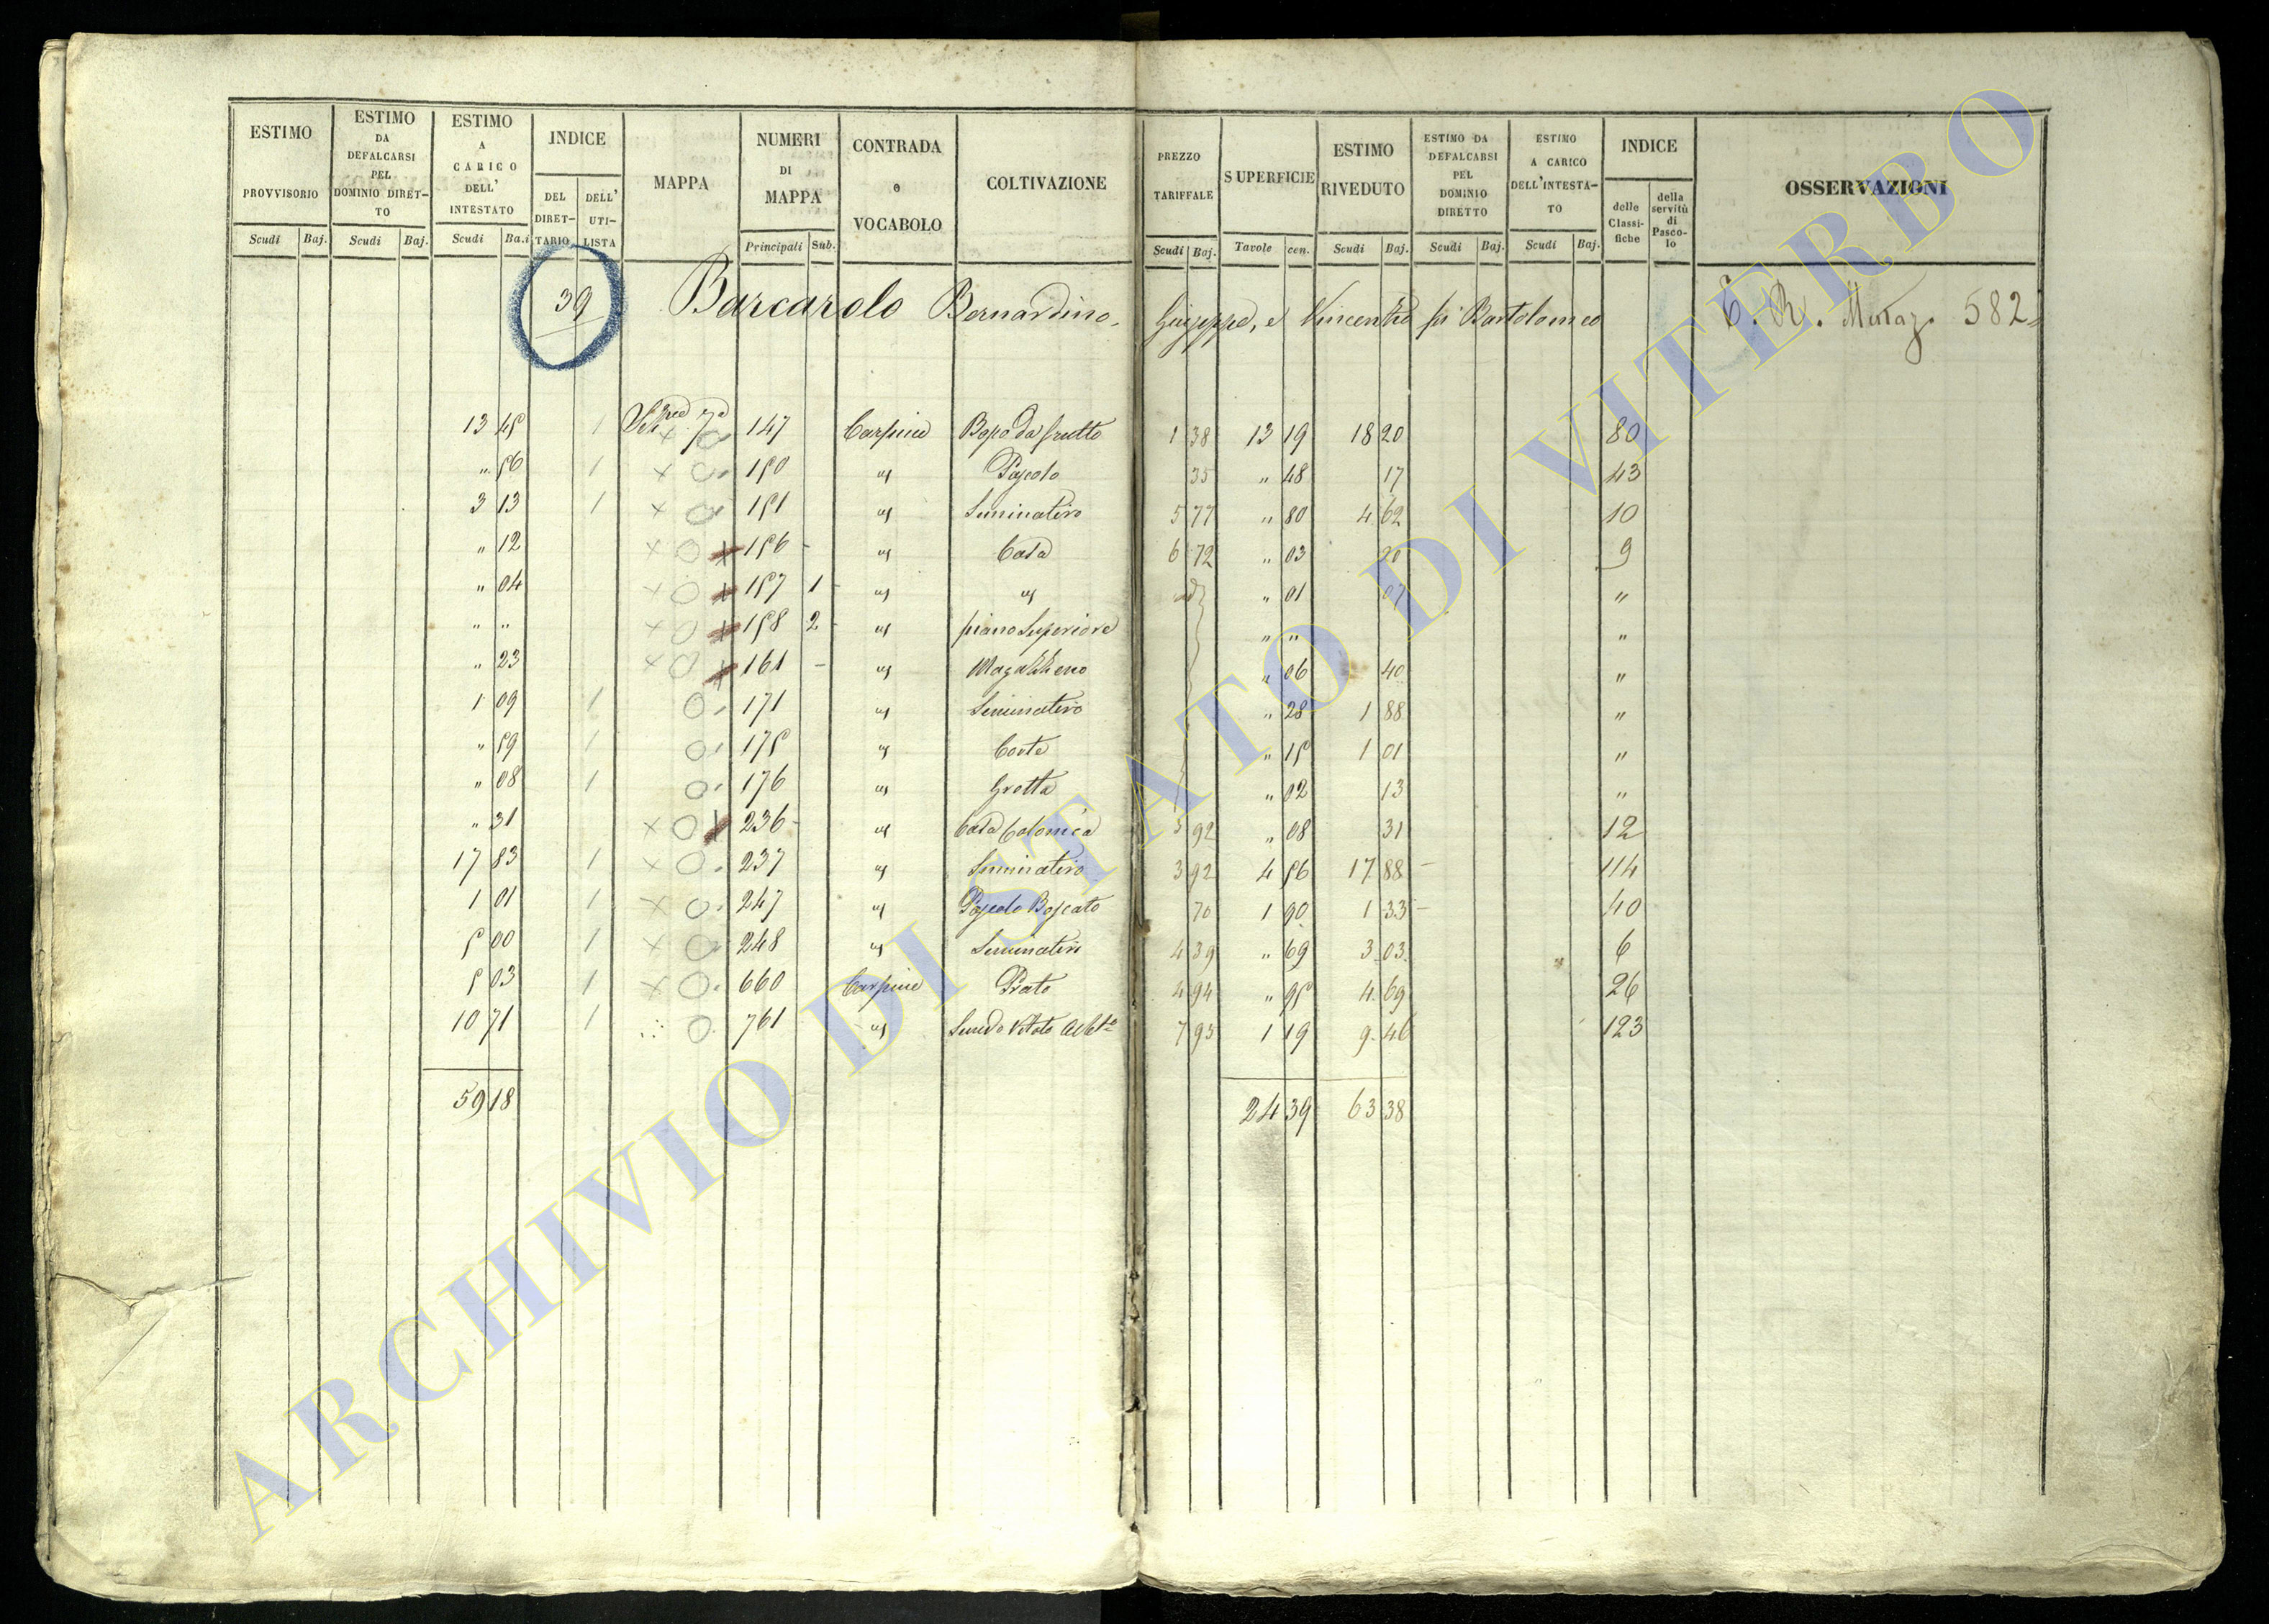 ESTIMO PROVVISORIO
ESTIMO DA DEFALCARSI PEL DOMINIO DIRETTO
ESTIMO A CARICO DELL' INTESTATO
INDICE
DEL DIRETTARIO
DELL' UTILISTA
MAPPA
NUMERI DI MAPPA
CONTRADA o VOCABOLO
COLTIVAZIONE
PREZZO TARIFFALE
SUPERFICIE
ESTIMO RIVEDUTO
ESTIMO DA DEFALCARSI PEL DOMINIO DIRETTO
ESTIMO A CARICO DELL'INTESTATO
INDICE
delle Classifiche
della servitù di Pascolo
OSSERVAZIONI
Scudi Baj. Scudi Baj. Scudi Ba.i Principali Sub. Scudi Baj. Tavole cen. Scudi Baj. Scudi Baj. Scudi Baj.
39 Barcarolo Bernardino, Giuseppe, e Vincenzo fu Bartolomeo 582
13 45 1 147 Carpine Bosco da frutto 1 38 13 19 18 20 80
" 56 1 150 " Pascolo 35 " 48 17 43
3 13 1 151 " Seminativo 5 77 " 80 4 62 10
" 12 156 " Casa 6 72 " 03 20 9
" 04 157 1 " " " 01 07 "
" " 158 2 " piano Superiore " " "
" 23 161 " Magazzeno " 06 40 "
1 09 1 171 " Seminativo " 28 1 88 "
" 59 1 175 " Corte " 15 1 01 "
" 08 1 176 " Grotta " 02 13 "
" 31 236 " Casa Colonica 3 92 " 08 31 12
17 83 1 237 " Seminativo 3 92 4 56 17 88 114
1 01 1 247 " Pascolo Boscato 70 1 90 1 33 40
5 00 1 248 " Seminativo 4 39 " 69 3 03 6
5 03 1 660 Carpine Prato 4 94 " 95 4 69 26
10 71 1 761 " 7 95 1 19 9 46 123
59 18 24 39 63 38
ARCHIVIO DI STATO DI VITERBO